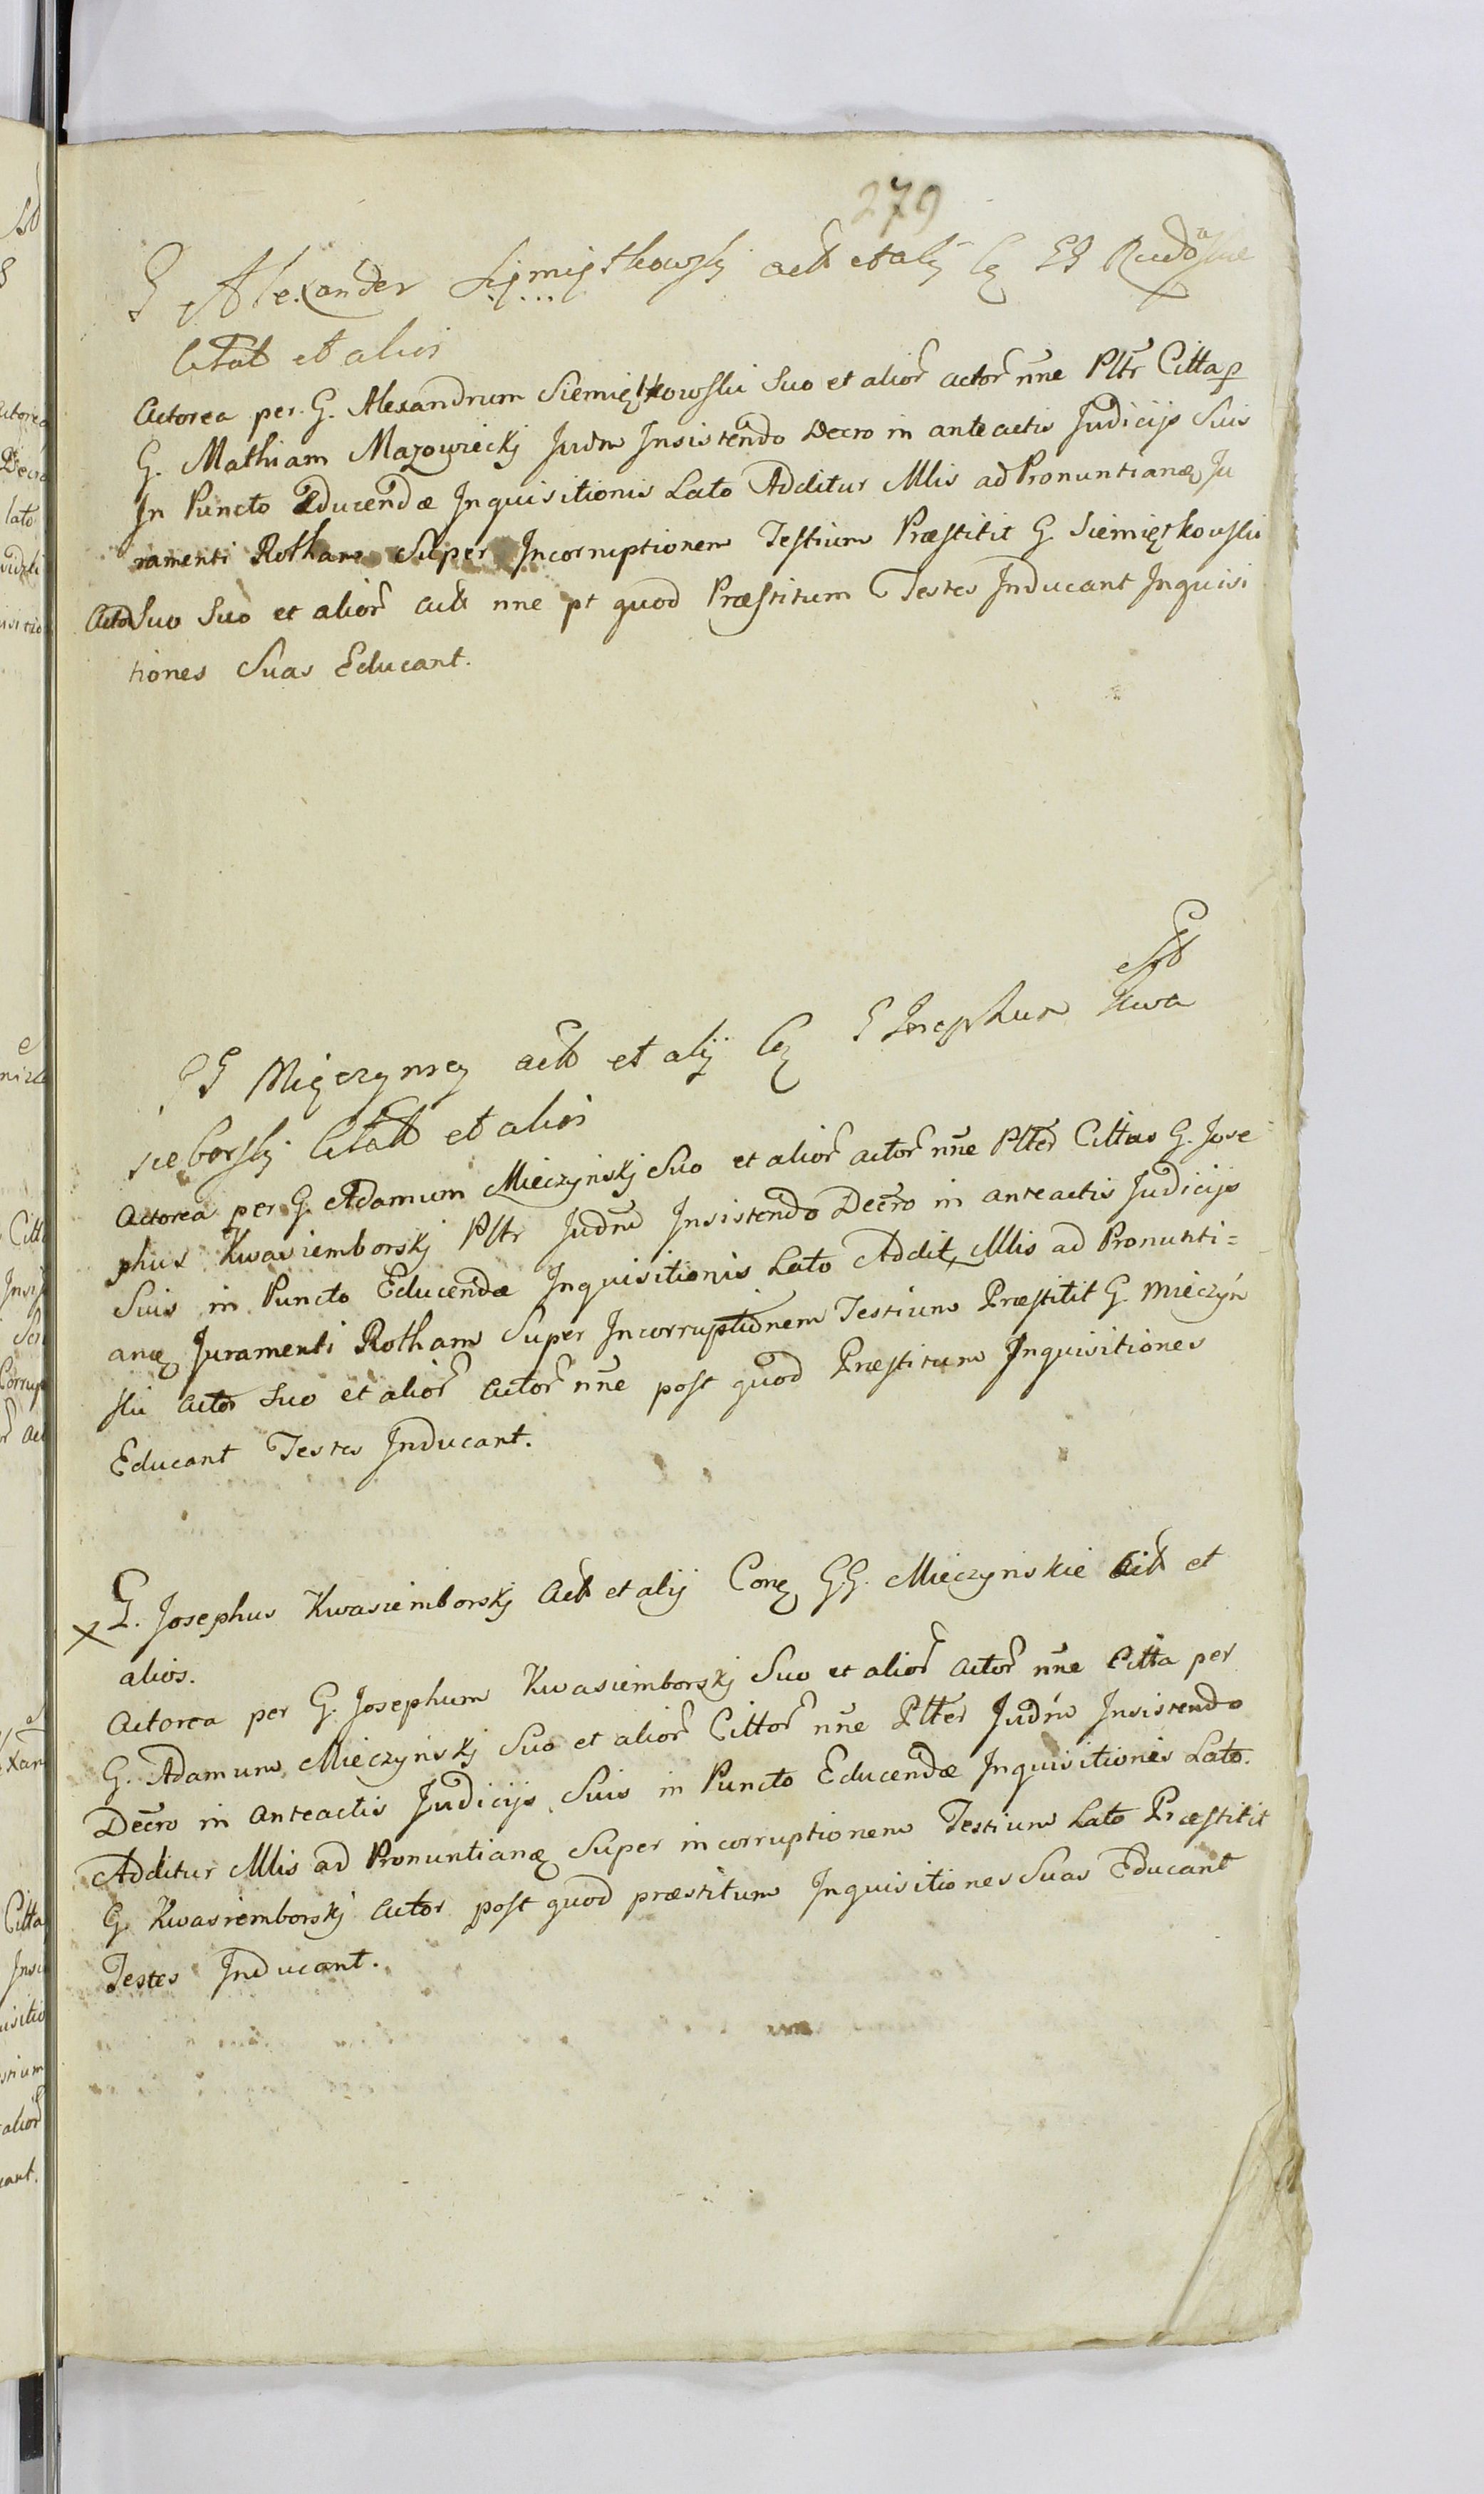 279
G Alexander Siemiętkowskj act et alij Cq GG Rudo
Citat et alios
Actorea per G. Alexandrum Siemiętkowski Suo et alior actor nne Pltr Citta p
G. Mathiam Mazowieckj Judm Insistendo Decro in anteactis Judicijs Suis
In Puncto Educendæ Inquisitionis Lato Additur Mlis ad Pronuntianą Ju
ramenti Rotham Super Incorruptionem Testium Præstitit G. Siemiętkowski
Actor Suo Suo et alior act nne pt quod Præstitum Testes Inducant Inquisi
tiones Suas Educant.
GG Mięczynscy act et alij Cq G Josephum Kwa
sieborskj Citat et alios
Actorea per G. Adamum Mieczyńskj Suo et alior actor nne Plter Cittus G. Jose
phus Kwasiemborskj Pltr Judm Insistendo Decro in anteactis Judicijs
Suis in Puncto Educendæ Inquisitionis Lato Addit Mlis ad Pronunti=
aną Juramenti Rotham Super Incorruptionem Testium Præstitit G. Mieczyń
ski Actor Suo et alior Actor nne post quod Præstitum Inquisitiones
Educant Testes Inducant.
x G. Josephus Kwasiemborskj Act et alij Conq GG. Mieczynskie Cit et
alios.
Actorea per G. Josephum Kwasiemborskj Suo et alior Actor nne Citta per
G. Adamum Mieczyńskj Suo et alior Cittor nne Plter Judm Insistendo
Decro in Anteactis Judicijs Suis in Puncto Educendæ Inquisitionis Lato.
Additur Mlis ad Pronuntianą Super incorruptionem Testium Lato Præstitit
G. Kwasiemborskj Actor post quod præstitum Inquisitiones Suas Educant
Testes Inducant.